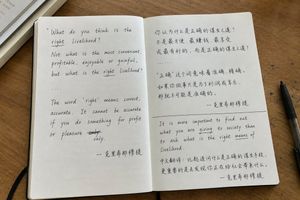 What do you think is the
right livelihood?
Not what is the most convenient
profitable, enjoyable or gainful,
but what is the right livelihood.
The word 'right' means correct,
accurate. It cannot be accurate
if you do something for profit
or pleasure only
only.
—克里希那穆提
你认为什么是正确的谋生之道?
不是最方便、最赚钱、最享受
或最有利的,而是正确的谋生之道。
"正确"这个词意味着准确、精确。
如果你做事只是为了利润或享乐,
那就不可能是准确的。
—克里希那穆提
It is more important to find out
what you are giving to society than
to ask what is the right means of
livelihood.
—克里希那穆提